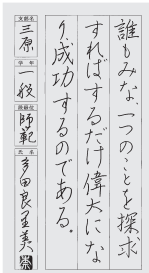 誰もみな、一つのことを探求
すればするだけ偉大にな
り、成功するのである。
支部名
三原
学年
一般
段級位
師範
氏名
多田良里美